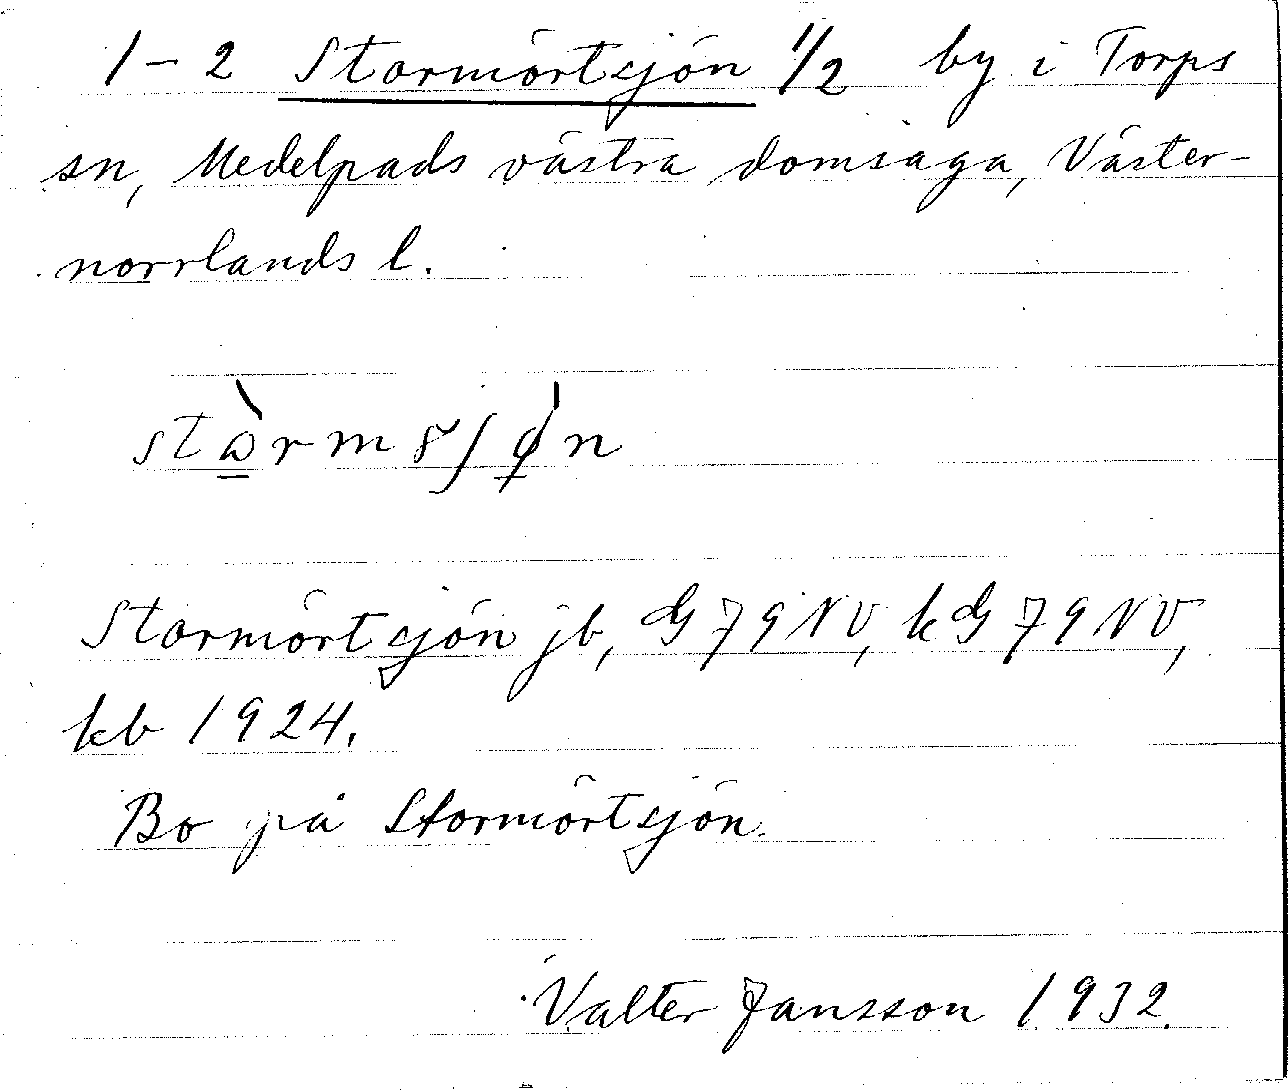 1–2 Stormörtsjön 1/2 by i Torps
sn, Medelpads västra domsaga, Väster-
norrlands l.
Stormörtsjön jb, G 79 NV, kG 79 NV,
kb 1924.
Bo på Stormörtsjön.
Valter Jansson 1932.